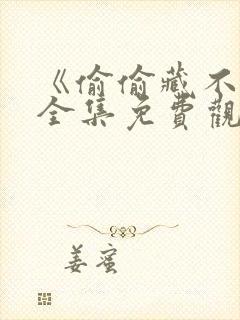 《偷偷藏不
全集免費觀
姜蜜